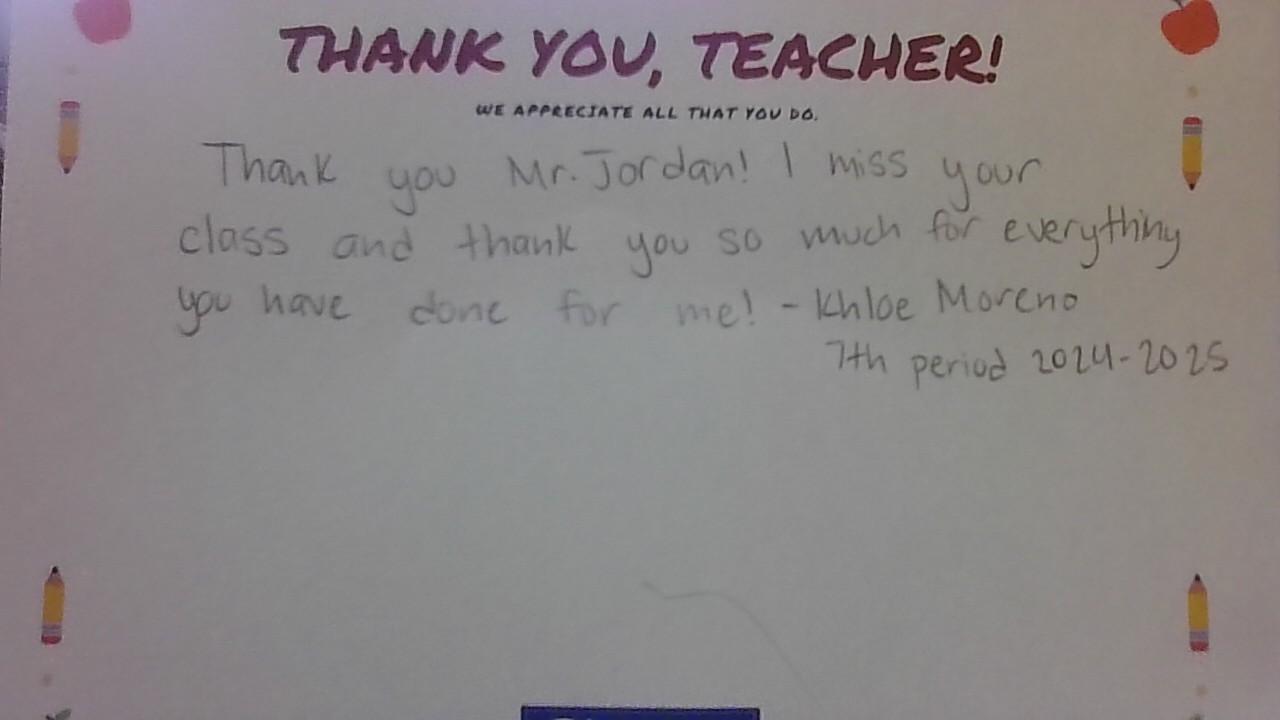 THANK YOU, TEACHER!
WE APPRECIATE ALL THAT YOU DO.
Thank you Mr. Jordan! I miss your
class and thank you so much for everything
you have done for me! - Khloe Moreno
7th period 2024-2025